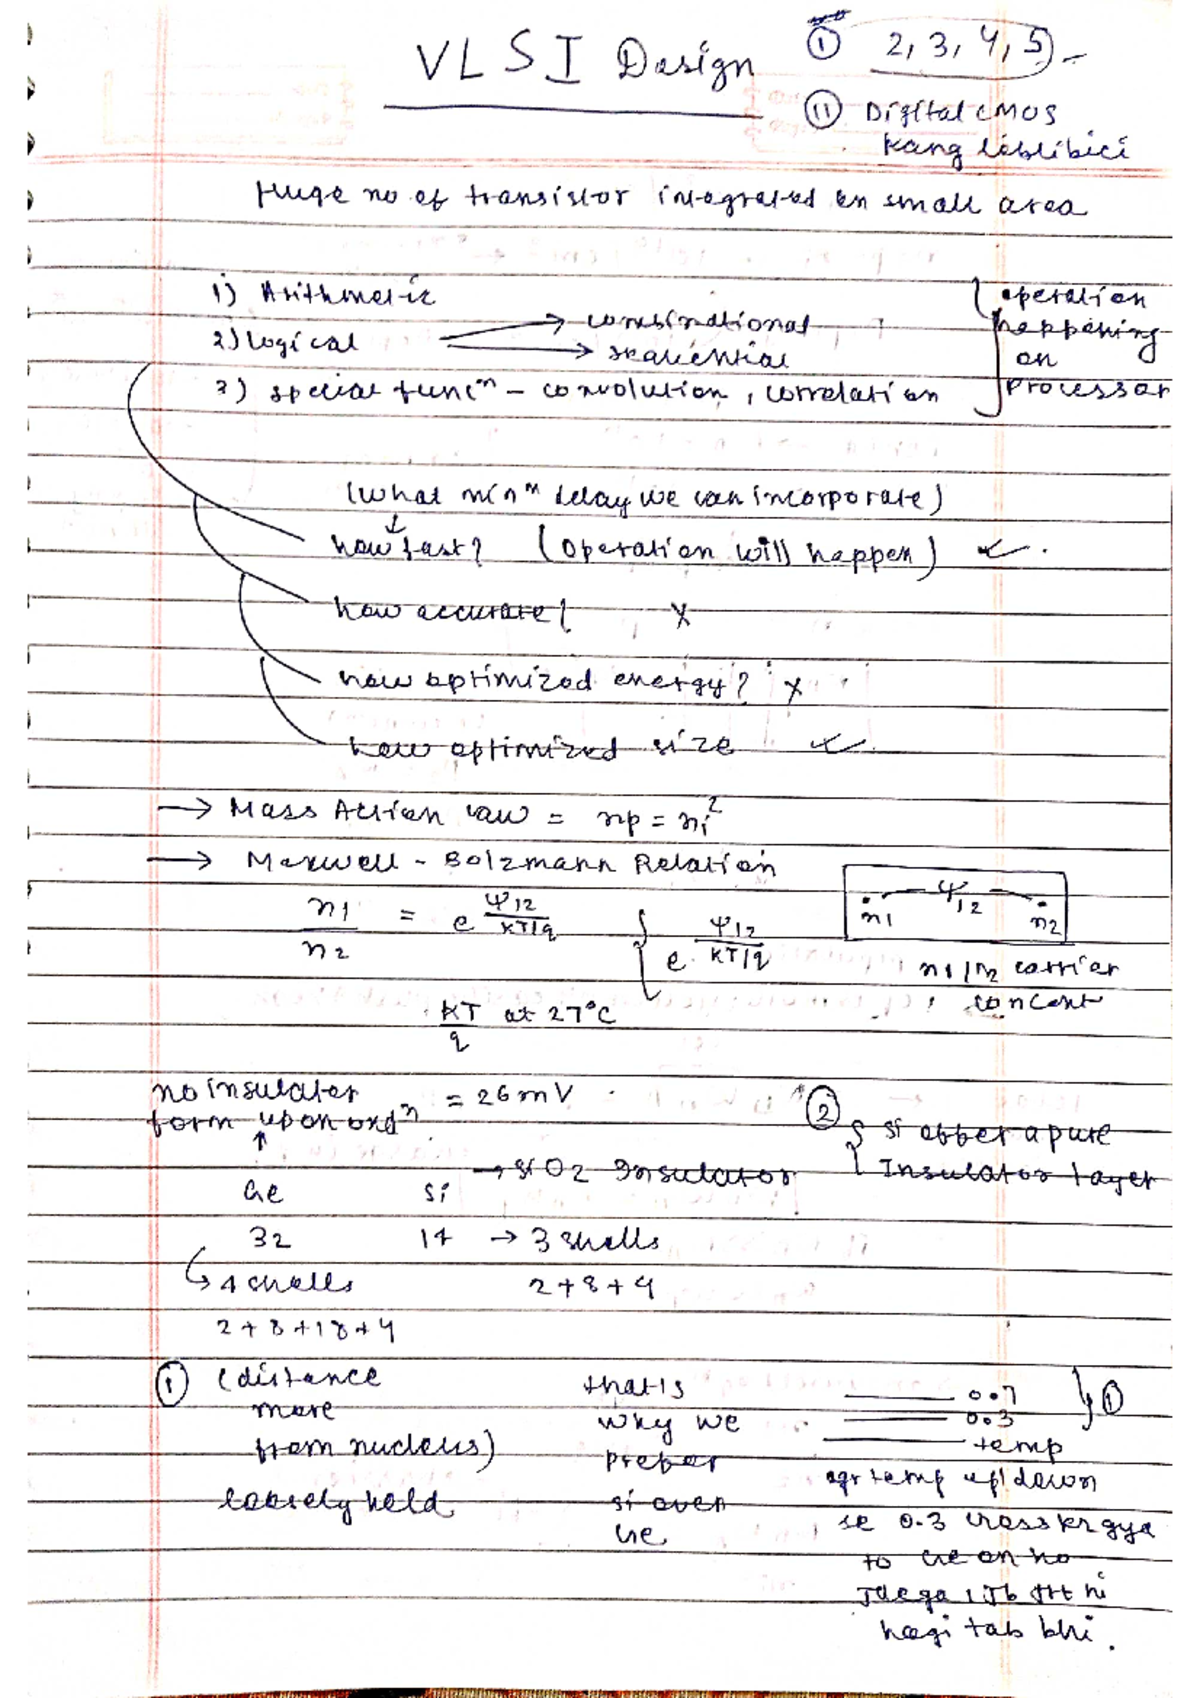 VLSI Design
① 2, 3, 4, 5
⑪ Digital CMOS
Kang leblibici
Huge no of transistor integrated on small area
1) Arithmetic
2) logical → combinational
→ sequential
3) special funcⁿ - convolution, correlation
operation
happening
on
Processor
(What minᵐ delay we can incorporate)
↓
how fast? (operation will happen) ✓.
how accurate? X
how optimized energy? X
how optimized size ✓
→ Mass Action law = np = ni²
→ Maxwell - Bolzmann Relation
n1/n2 = e ψ12/KT/q
e ψ12/KT/q
n1 ψ12 n2
n1/n2 carrier
concent
KT/q at 27°C
= 26mV
no insulator
form upon oxdⁿ
↑
Ge Si → SiO2 Insulator
② Si offer a pure
Insulator layer
32 14 → 3 shells
↳ 4 shells 2+8+4
2+8+18+4
① (distance
more
from nucleus)
loosely held
that is
why we
prefer
si over
Ge
0.7
0.3
temp
①
agr temp up/down
se 0.3 cross kr gya
to Ge on ho
Jaega
hogi tab bhi.